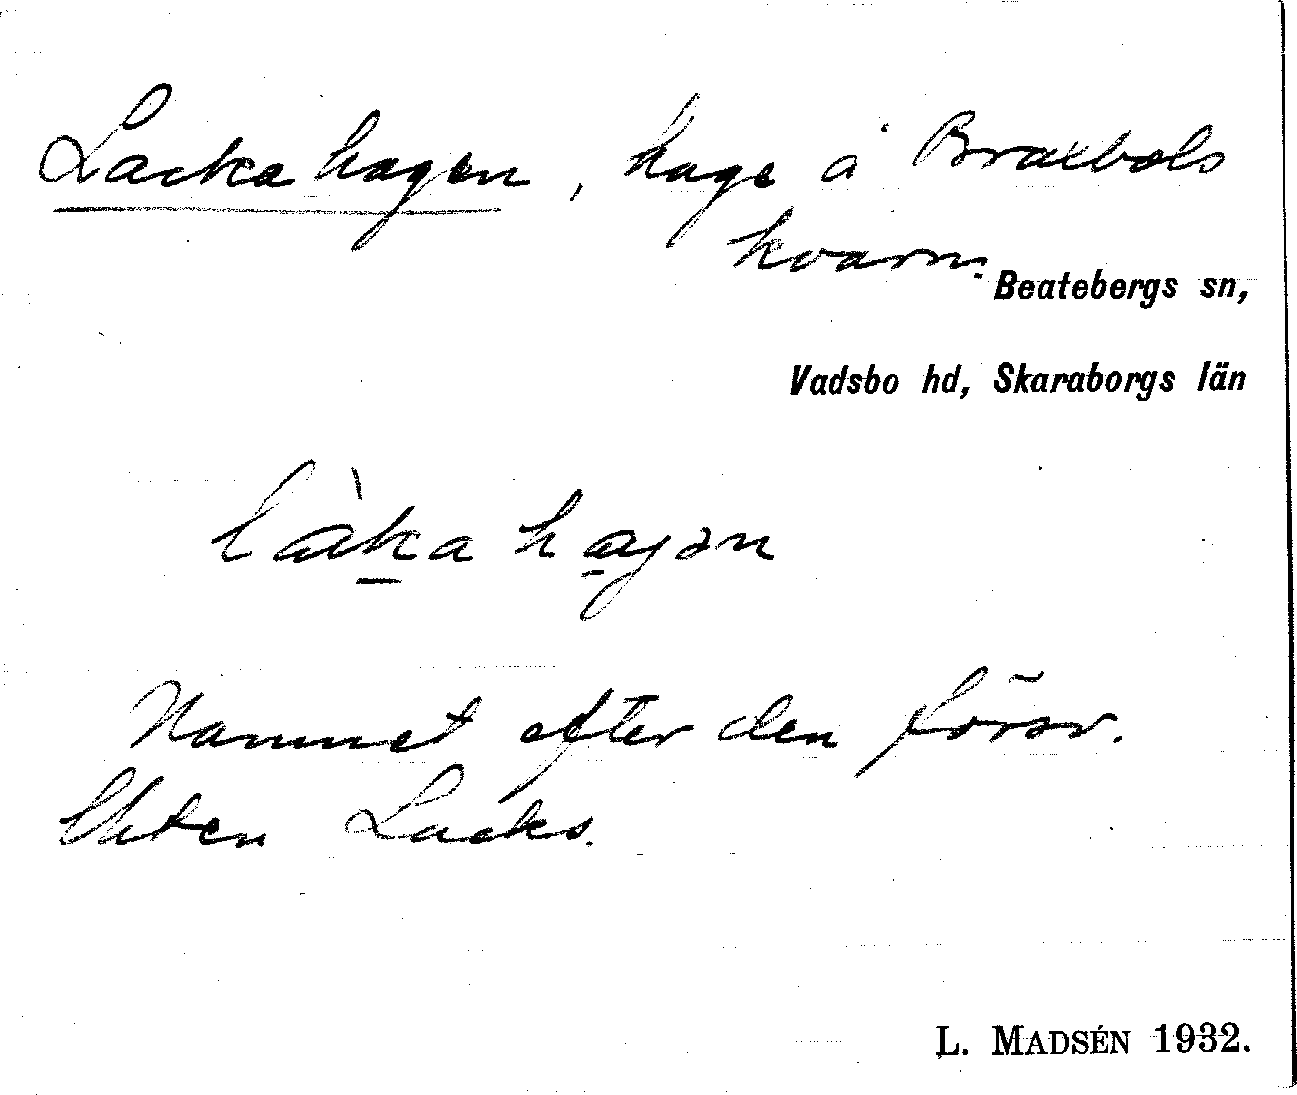 Lackahagen, hage å Braxbols
kvarn.
Beatebergs sn,
Vadsbo hd, Skaraborgs län
làka hagən
Namnet efter den försv.
Uhten Lacks.
L. MADSÉN 1932.